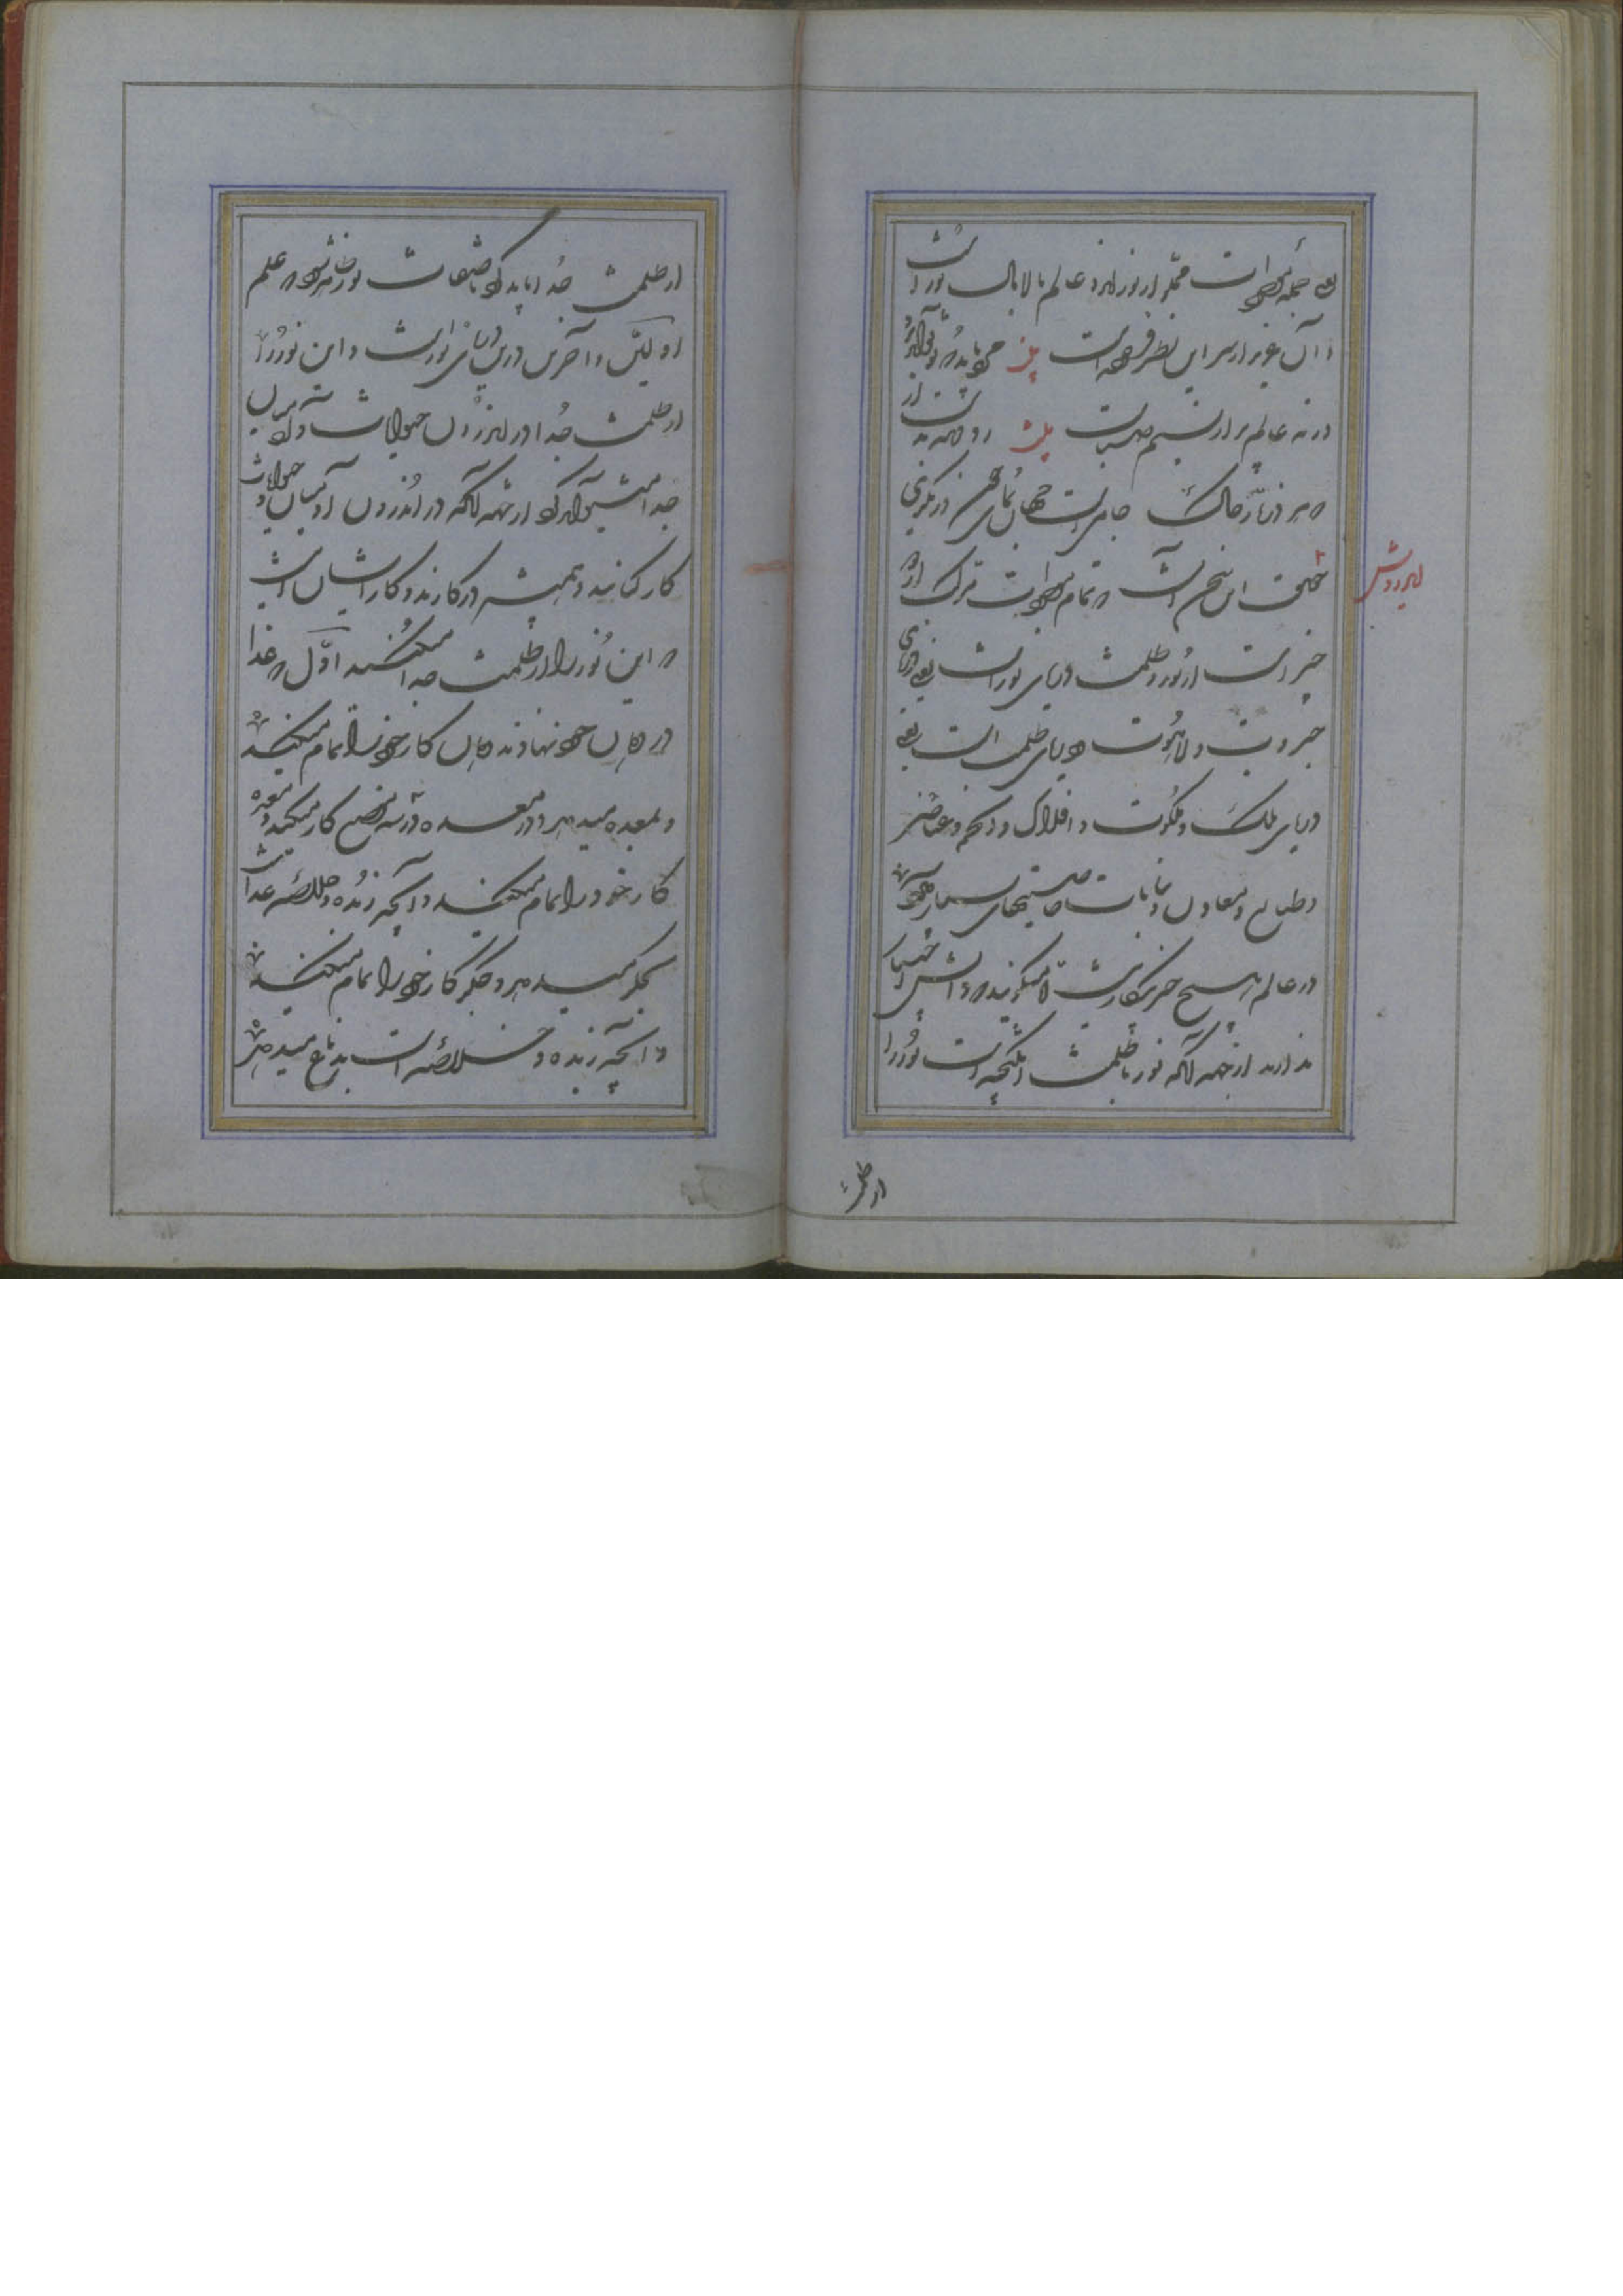 یعنی جمله موجودات مملو از نور اند و عالم مالامال نور است
و آن عزیز از سر این نظر فرموده است بیت مردی باید که بوی تواند برد
ورنه عالم پر از نسیم صباست بیت رو دیده بدست آر
که هر ذره ز خاک جامی است جهان نمای چون درنگری
ای درویش
حقیقت این سخن آنست که تمام موجودات مرکب از دو
چیز است از نور و ظلمت دریای نور است یعنی دریای
جبروت و لاهوت و دریای ظلمت است یعنی
دریای ملک و ملکوت و افلاک و انجم و عناصر
و طبایع و معادن و نباتات خاصیتهای بسیار
در عالم هیچ چیز بیکار نیست لا میگویند که دانش و اختیار
ندارند از جهت آنکه نور با ظلمت آمیخته است نور را
از ظلمت
از ظلمت جدا باید کرد تا صفات نور ظاهر شود که علم
اولین و آخرین درین دریای نور است و این نور را
از ظلمت جدا در اندرون حیوانات
جدا میتوان کرد از جهت آنکه در اندرون آدمیان و حیوانات
کارکنانند و همیشه در کارند و کار ایشان اینست
که این نور را از ظلمت جدا میکنند اول که غذا
در دهان خود نهادند دهان کار خود را تمام میکند
و بمعده میدهد و در معده کار میکند و معده
کار خود را تمام میکند و آنچه زبده و خلاصه غذاست
بجگر میدهد و جگر کار خود را تمام میکند
و آنچه زبده و خلاصه است بدماغ میدهد